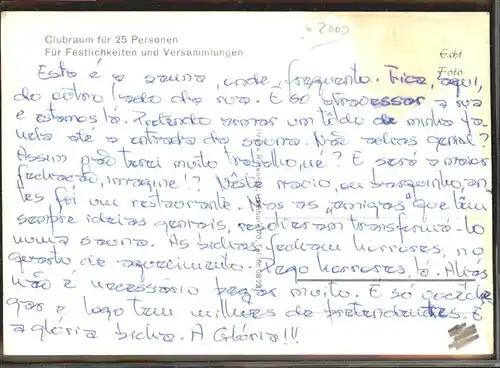 + 2000
Clubraum für 25 Personen
Für Festlichkeiten und Versammlungen
Echt
Foto
Esta é a sauna, onde frequento. Fica, aqui,
do outro lado da rua. É só atravessar a rua
e estamos lá. Pretendo armar um tôldo de minha ja
nela até a entrada da sauna. Não achas genial?
Assim não terei muito trabalho, né? E será a maior
fechação, imagine!? Nêste navio, ou barquinho, an
tes foi um restaurante. Mas as "amigas" que têm
sempre ideias geniais, resolveram transformá-lo
numa sauna. As bichas fecham horrores, no
quarto de aquecimento. Pego horrores, lá. Aliás
não é necessario pegar muito. É só você che
gar e logo tem milhões de pretendentes. É
a glória bicha. A Glória!!!